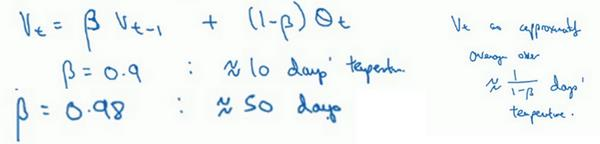 Vt = β Vt-1 + (1-β) θt
β = 0.9 : ≈ 10 days' temperature
β = 0.98 : ≈ 50 days
Vt as approximately
average over
≈ 1/(1-β) days'
temperature.